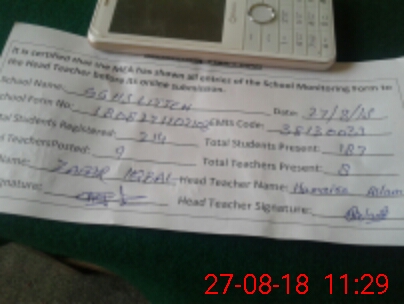 It is certified that the MEA has shown all entries of the School Monitoring Form to
the Head Teacher before its online submission.
School Name: GGHS Date: 27/8/18
School Form No: EMIS Code:
Total Students Registered: 214 Total Students Present: 187
Teachers Posted: 9 Total Teachers Present: 8
Name: Zafar Iqbal Head Teacher Name: Aslam
Signature: Head Teacher Signature:
27-08-18 11:29